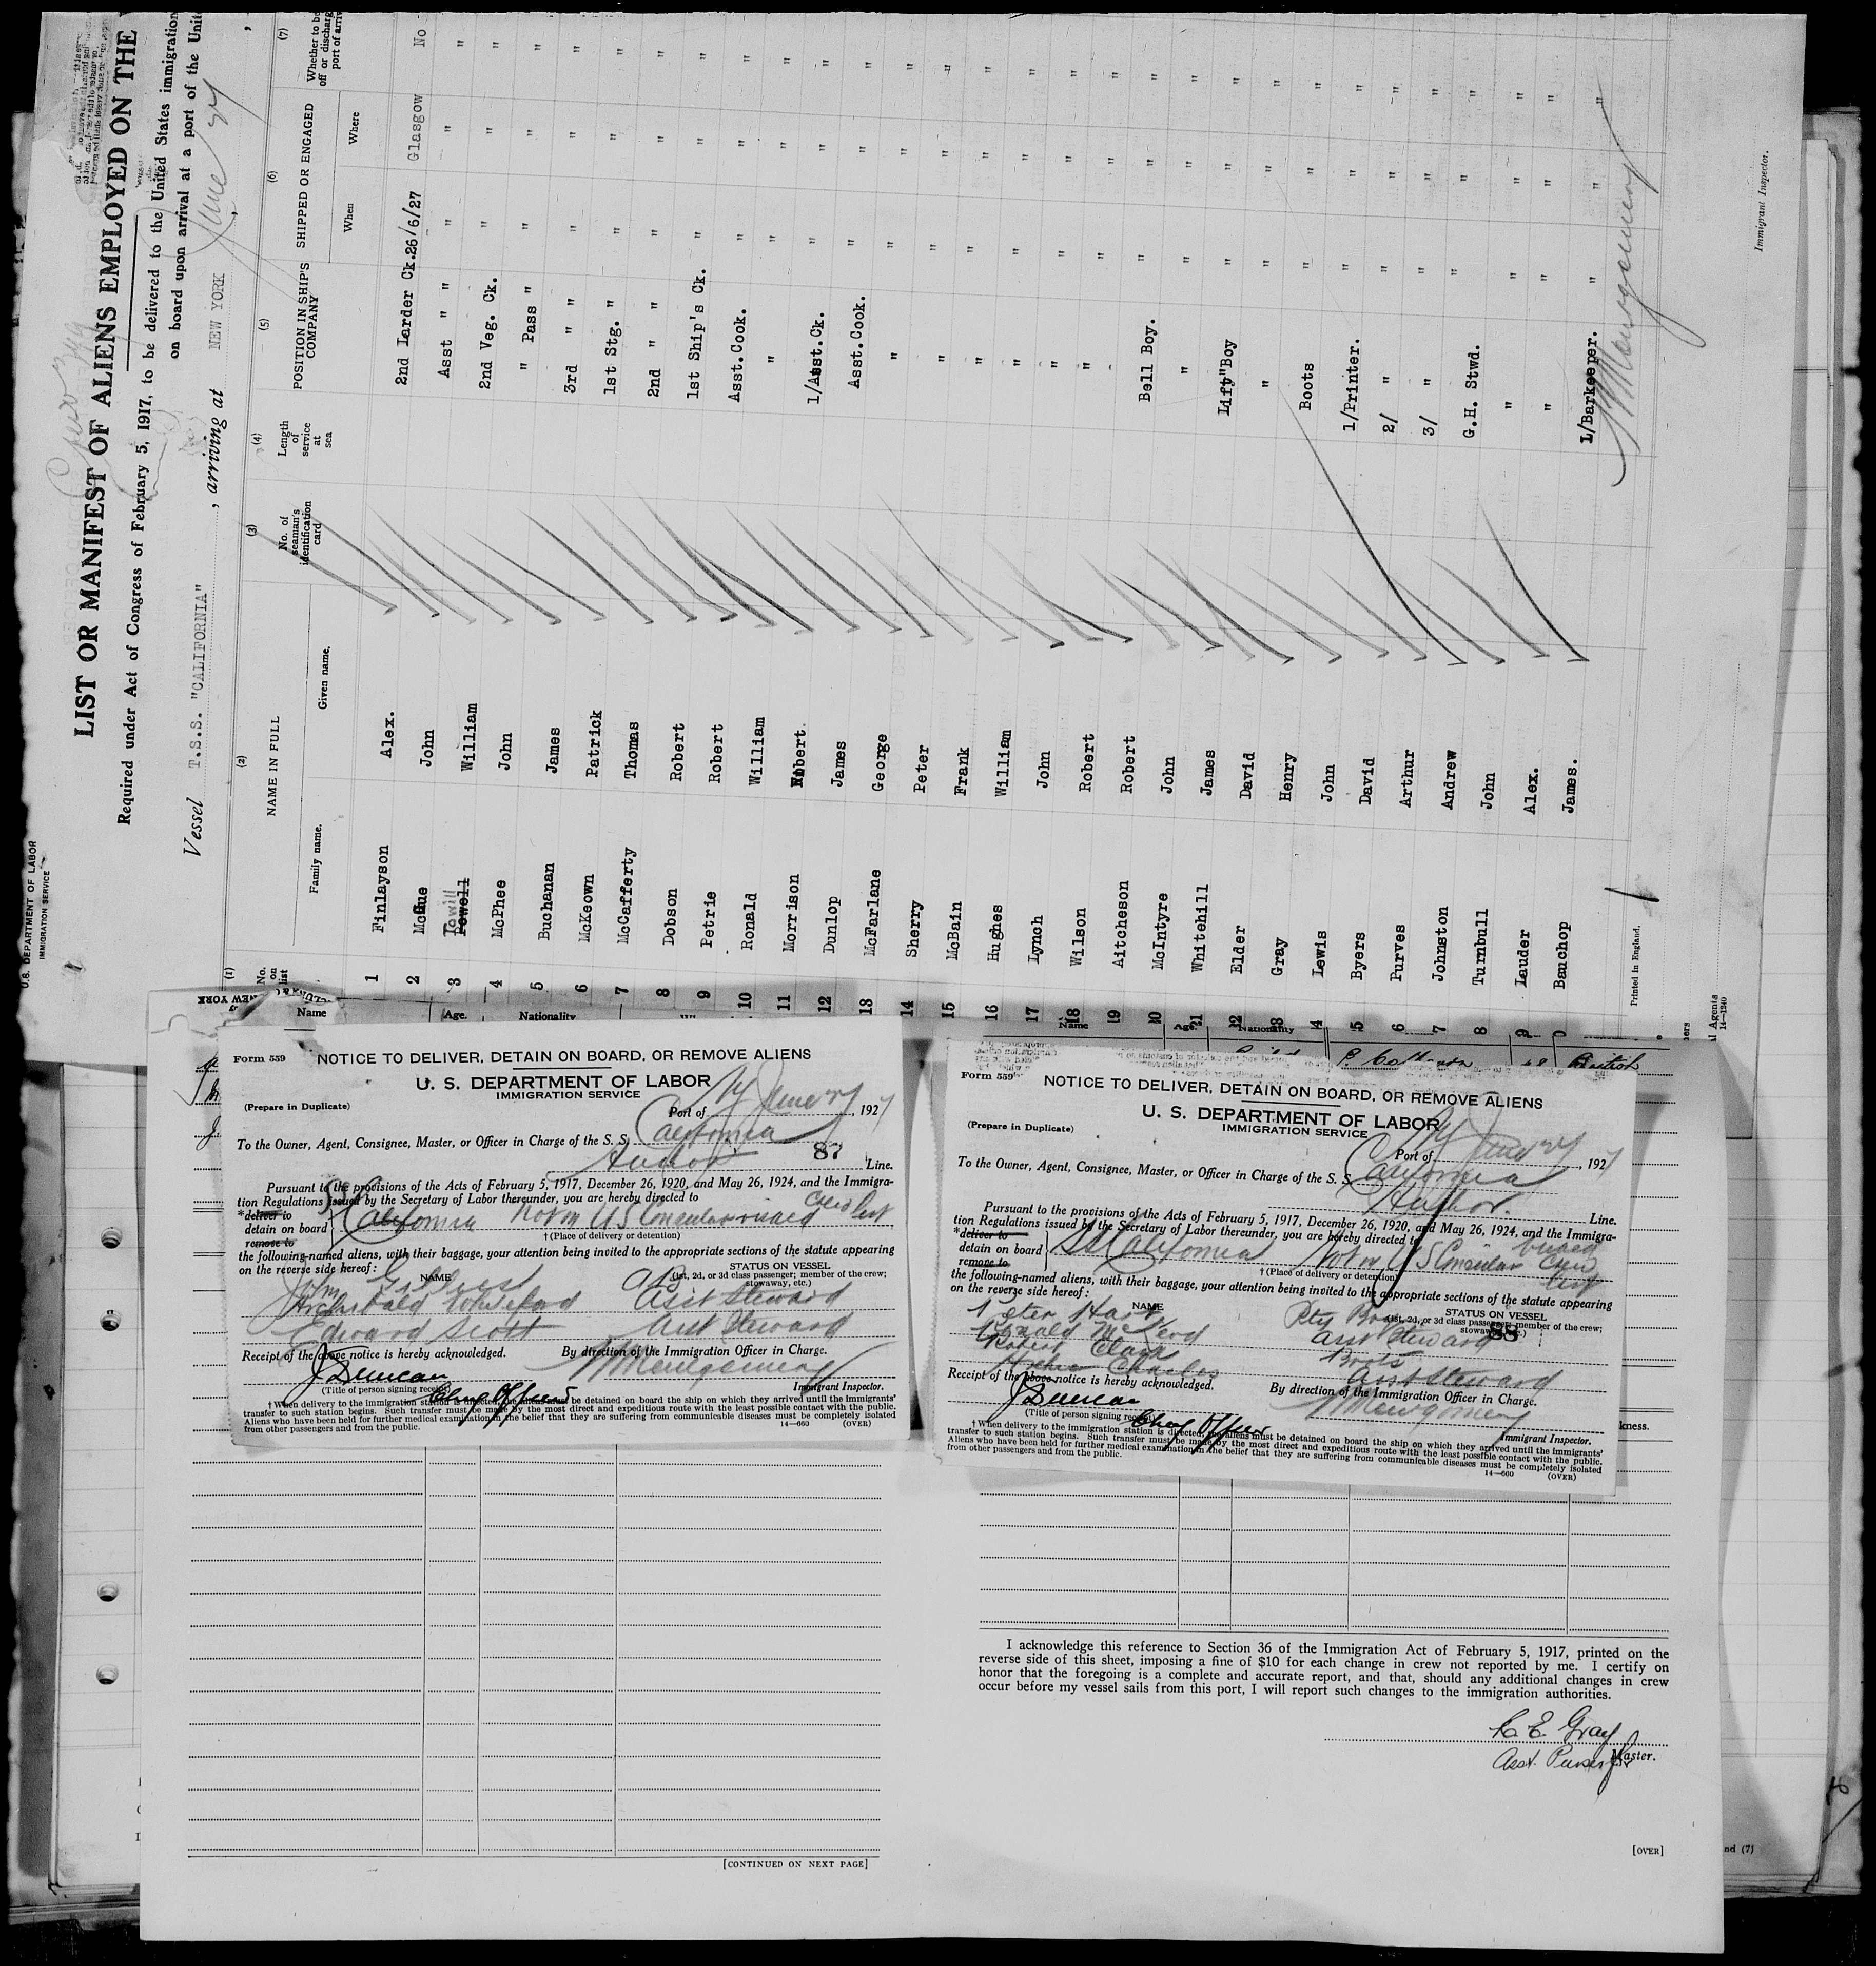 U.S. DEPARTMENT OF LABOR
IMMIGRATION SERVICE
LIST OR MANIFEST OF ALIENS EMPLOYED ON THE
Required under Act of Congress of February 5, 1917, to be delivered to the United States immigration
on board upon arrival at a port of the Unit
Vessel T.S.S. "CALIFORNIA" , arriving at NEW YORK , June 27
(1) (2) (3) (4) (5) (6) (7)
No. on list
NAME IN FULL
Family name. Given name.
No. of seaman's identification card
Length of service at sea
POSITION IN SHIP'S COMPANY
SHIPPED OR ENGAGED
When Where
Whether to be off or discharg port of arriv
1 Finlayson Alex. 2nd Larder Ck. 26/6/27 Glasgow No
2 McGue John Asst " " " " "
3 Towill William 2nd Veg. Ck. " " "
4 McPhee John " Pass " " " "
5 Buchanan James 3rd " " " " "
6 McKeown Patrick 1st Stg. " " " "
7 McCafferty Thomas 2nd " " " " "
8 Dobson Robert 1st Ship's Ck. " " "
9 Petrie Robert Asst.Cook. " " "
10 Ronald William " " " "
11 Morrison Robert. 1/Asst.Ck. " " "
12 Dunlop James Asst.Cook. " " "
13 McFarlane George " " " "
14 Sherry Peter " " " "
15 McBain Frank " " " "
16 Hughes William " " " "
17 Lynch John " " " "
18 Wilson Robert " " " "
19 Aitcheson Robert Bell Boy. " " "
20 McIntyre John " " " "
21 Whitehill James Lift"Boy " " "
22 Elder David " " " "
23 Gray Henry Boots " " "
24 Lewis John 1/Printer. " " "
25 Byers David 2/ " " " "
26 Purves Arthur 3/ " " " "
27 Johnston Andrew G.H. Stwd. " " "
28 Turnbull John " " " "
29 Lauder Alex. " " " "
30 Bauchop James. 1/Barkeeper. " " "
Printed in England.
Immigrant Inspector.
Agents
14—1240
NEW YORK
Name Age. Nationality
Name Nationality
Form 559
NOTICE TO DELIVER, DETAIN ON BOARD, OR REMOVE ALIENS
U. S. DEPARTMENT OF LABOR
IMMIGRATION SERVICE
(Prepare in Duplicate)
Port of NY June 27, 1927
To the Owner, Agent, Consignee, Master, or Officer in Charge of the S. S. California
87
Anchor Line.
Pursuant to the provisions of the Acts of February 5, 1917, December 26, 1920, and May 26, 1924, and the Immigra-
tion Regulations issued by the Secretary of Labor thereunder, you are hereby directed to
*deliver to
detain on board SS California Not on US Consular visaed Crew List
remove to
† (Place of delivery or detention)
the following-named aliens, with their baggage, your attention being invited to the appropriate sections of the statute appearing
on the reverse side hereof:
NAME STATUS ON VESSEL
(1st, 2d, or 3d class passenger; member of the crew; stowaway, etc.)
John Gilchrist AB
Archibald Whiteford Asst Steward
Edward Scott Asst Steward
Receipt of the above notice is hereby acknowledged. By direction of the Immigration Officer in Charge.
J Duncan
Chief Officer
(Title of person signing receipt) Immigrant Inspector.
† When delivery to the immigration station is directed, the aliens must be detained on board the ship on which they arrived until the immigrants'
transfer to such station begins. Such transfer must be made by the most direct and expeditious route with the least possible contact with the public.
Aliens who have been held for further medical examination in the belief that they are suffering from communicable diseases must be completely isolated
from other passengers and from the public. 14—660 (OVER)
Form 559
NOTICE TO DELIVER, DETAIN ON BOARD, OR REMOVE ALIENS
U. S. DEPARTMENT OF LABOR
IMMIGRATION SERVICE
(Prepare in Duplicate)
Port of NY June 27, 1927
To the Owner, Agent, Consignee, Master, or Officer in Charge of the S. S. California
Anchor. Line.
Pursuant to the provisions of the Acts of February 5, 1917, December 26, 1920, and May 26, 1924, and the Immigra-
tion Regulations issued by the Secretary of Labor thereunder, you are hereby directed to
*deliver to
detain on board SS California Not on US Consular visaed Crew List
remove to
† (Place of delivery or detention)
the following-named aliens, with their baggage, your attention being invited to the appropriate sections of the statute appearing
on the reverse side hereof:
NAME STATUS ON VESSEL
(1st, 2d, or 3d class passenger; member of the crew; stowaway, etc.)
88
Peter Hart
Donald McLeod Asst Steward
Robert Clark Boots
Charles Asst Steward
Receipt of the above notice is hereby acknowledged. By direction of the Immigration Officer in Charge.
J Duncan
Chief Officer
(Title of person signing receipt) Immigrant Inspector.
† When delivery to the immigration station is directed, the aliens must be detained on board the ship on which they arrived until the immigrants'
transfer to such station begins. Such transfer must be made by the most direct and expeditious route with the least possible contact with the public.
Aliens who have been held for further medical examination in the belief that they are suffering from communicable diseases must be completely isolated
from other passengers and from the public. 14—660 (OVER)
kness.
I acknowledge this reference to Section 36 of the Immigration Act of February 5, 1917, printed on the
reverse side of this sheet, imposing a fine of $10 for each change in crew not reported by me. I certify on
honor that the foregoing is a complete and accurate report, and that, should any additional changes in crew
occur before my vessel sails from this port, I will report such changes to the immigration authorities.
C E. Gray
Asst. Purser
Master.
[CONTINUED ON NEXT PAGE]
[OVER]
nd (7)